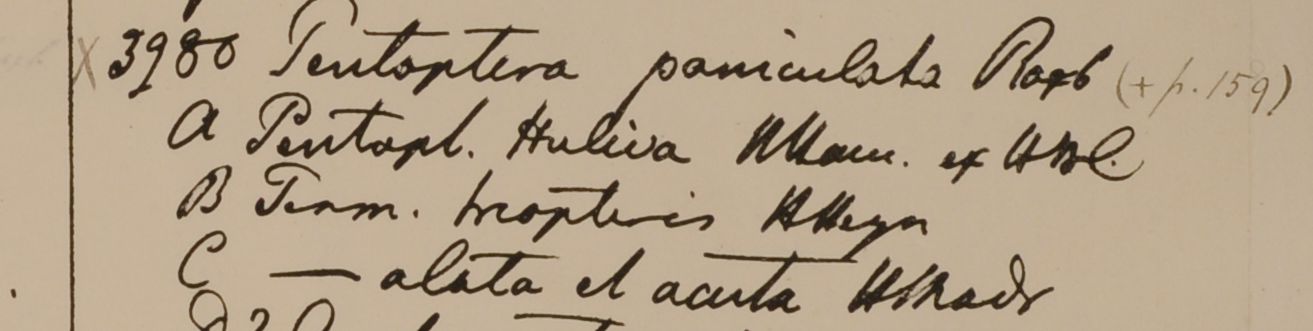 X 3980 Pentoptera paniculata Roxb (+ p. 159)
A Pentapt. Huliva HHam. ex HBC.
B Term. triopteris HHeyn
C — alata et acuta HMadr